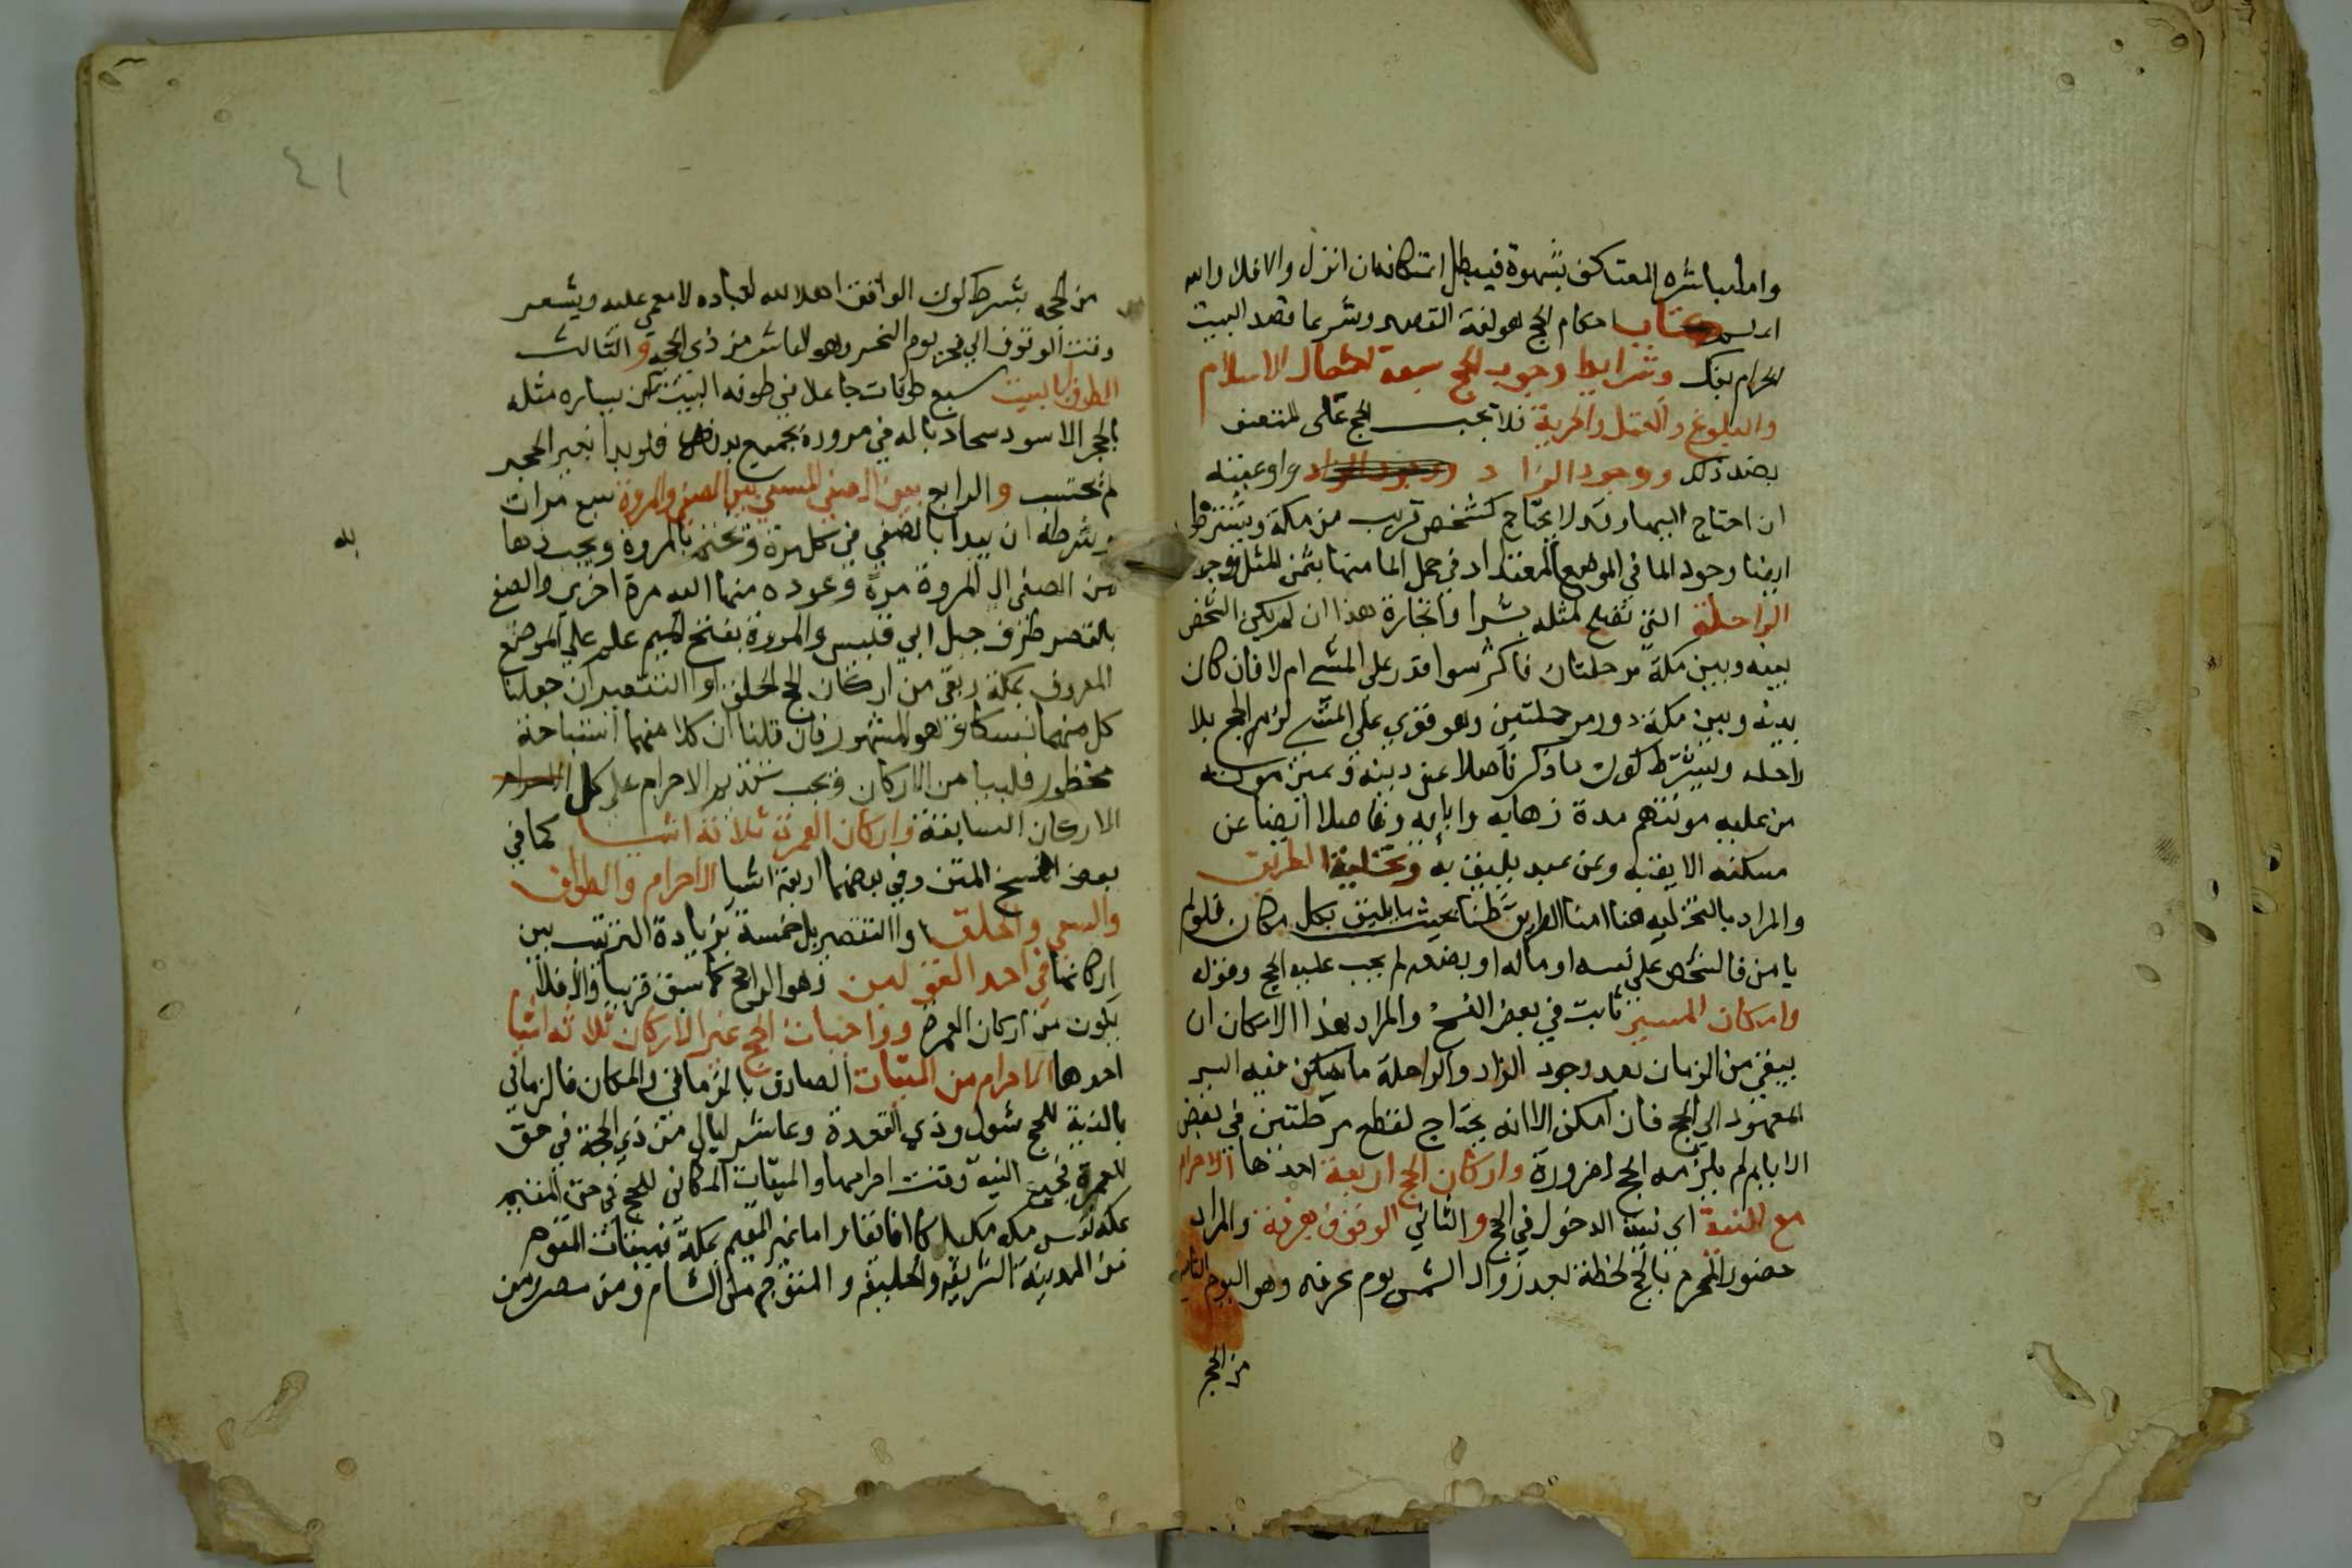 واما مباشرة المعتكف بشهوة فيبطل اعتكافه ان انزل والا فلا والله
اعلم كتاب احكام الحج هو لغة القصد وشرعا قصد البيت
الحرام بنسك وشرايط وجوب الحج سبعة خصال الاسلام
والبلوغ والعقل والحرية فلا يجب الحج على المتصف
بضد ذلك ووجود الزاد واوعيته
ان احتاج اليها وقد لا يحتاج كشخص قريب من مكة ويشترط
ايضا وجود الما في الموضع المعتاد في حمل الما منها بثمن المثل ووجود
الراحلة التي تصلح لمثله بشرا وانجارة هذا ان لم يكن الشخص
بينه وبين مكة مرحلتان فاكثر سوا قدر على المشي ام لا فان كان
بينه وبين مكة دون مرحلتين وهو قوي على المشي لزمه الحج بلا
راحلة ويشترط كون ما ذكر فاضلا عن دينه وعن مونة
من عليه مونتهم مدة ذهابه وايابه وفاضلا ايضا عن
مسكنه الايق به وعن عبد يليق به وتخلية الطريق
والمراد بالتخليه هنا امنا الطريق ظنا بحيث ما يليق بكل مكان فلو لم
يامن فالشخص على نفسه او ماله او بضعه لم يجب عليه الحج وقوله
وامكان المسير ثابت في بعض النسخ والمراد بهذا الامكان ان
يبقى من الزمان بعد وجود الزاد والراحلة ما يمكن فيه السير
المعهود الي الحج فان امكن الا انه يحتاج لقطع مرحلتين في بعض
الايام لم يلزمه الحج لضرورة واركان الحج اربعة احدها الاحرام
مع النية اي نية الدخول في الحج والثاني الوقوف بعرفة والمراد
حضور المحرم بالحج لحظة بعد زوال الشمس يوم عرفه وهو اليوم التاسع
من الحجه
٤١
من الحجه بشرط كون الواقف اهلا لله لعباده لا مغمى عليه ويستمر
وقت الوقوف الي فجر يوم النحر وهو العاشر من ذي الحجة والثالث
الطواف بالبيت سبع طوفات جاعلا في طوفه البيت عن يساره مبتديا
بالحجر الاسود محاذيا له في مروره بجميع بدنه فلو بدا بغير الحجر
لم يحتسب والرابع السعي بين الصفي والمروة سبع مرات
وشرطه ان يبدا بالصفي في كل مرة وتختم بالمروة ويحسب ذهابا
من الصفى الى المروة مرة وعوده منها اليه مرة اخرى والصفي
بالقصر طرف جبل ابي قبيس والمروة بفتح الميم علم على الموضع
المعروف بمكة وبقي من اركان الحج الحلق او التقصير ان جعلنا
كل منهما نسكا وهو المشهور فان قلنا ان كلا منهما استباحة
محظور فليسا من الاركان ويجب تقديم الاحرام على كل
الاركان السابقة واركان العمرة ثلاثة اشيا كما في
بعض النسخ المتن وفي بعضها اربعة اشيا الاحرام والطواف
والسعي والحلق او التقصير بل خمسة بزيادة الترتيب بين
اركانها في احد القولين وهو الراجح كما سبق قريبا والا فلا
يكون من اركان العمرة وواجبات الحج غير الاركان ثلاثة اشيا
احدها الاحرام من الميقات الصادق بالزماني والمكاني فالزماني
بالنسبة للحج شوال وذي القعدة وعاشر ليالي من ذي الحجة في حق
العمرة فجميع السنة وقت احرامها والميقات المكاني للحج في حق المقيم
بمكة نفس مكه مكيا كان او افاقيا واما غير المقيم بمكة فميقات المتوجه
من المدينة الشريفة ذو الحليفة و المتوجه من الشام ومن مصر ومن
لله